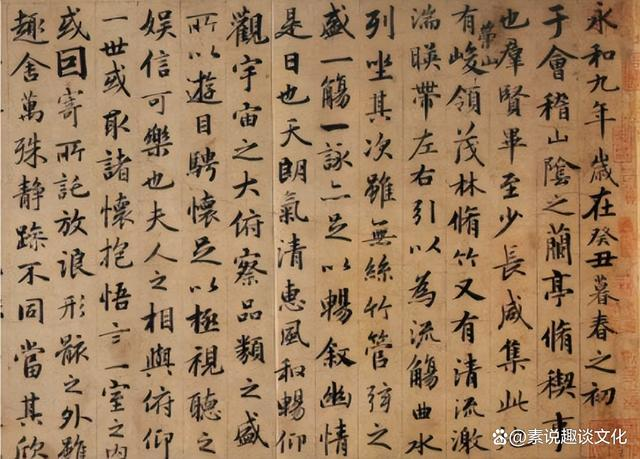 永和九年歲在癸丑暮春之初
于會稽山陰之蘭亭脩稧事
也羣賢畢至少長咸集此
有崇山峻領茂林脩竹又有清流激
湍暎帶左右引以為流觴曲水
列坐其次雖無絲竹管弦之
盛一觴一詠亦足以暢叙幽情
是日也天朗氣清惠風和暢仰
觀宇宙之大俯察品類之盛
所以遊目騁懷足以極視聽之
娛信可樂也夫人之相與俯仰
一世或取諸懷抱悟言一室之內
或因寄所託放浪形骸之外雖
趣舍萬殊靜躁不同當其欣
@素说趣谈文化